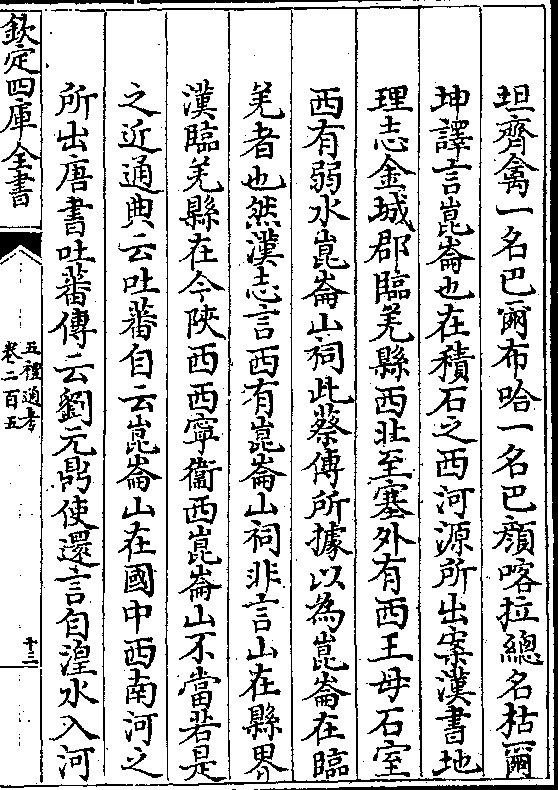 坦齊禽一名巴爾布哈一名巴顔喀拉總名枯爾
坤譯言崑崙也在積石之西河源所出案漢書地
理志金城郡臨羌縣西北至塞外有西王母石室
西有弱水崑崙山祠此蔡傳所據以為崑崙在臨
羌者也然漢志言西有崑崙山祠非言山在縣界
漢臨羌縣在今陝西西寧衞西崑崙山不當若是
之近通典云吐蕃自云崑崙山在國中西南河之
所出唐書吐蕃傳云劉元鼎使還言自湟水入河
欽定四庫全書
五禮通考
卷二百五
十三